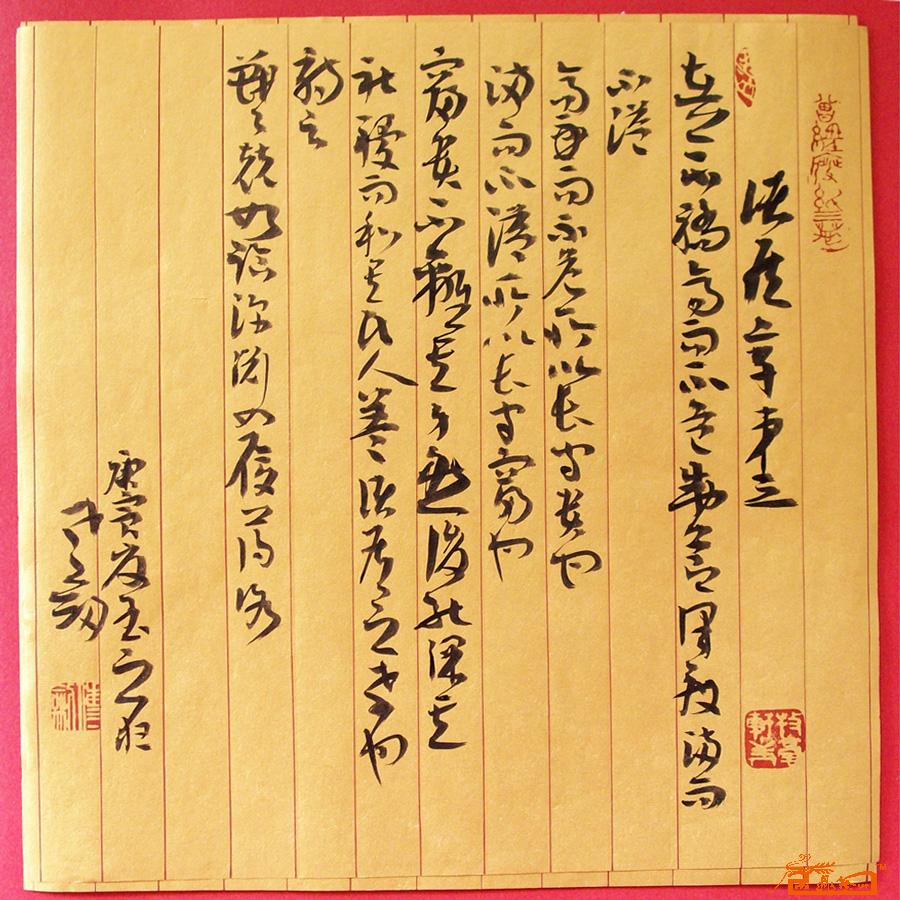 諸侯章第三
在上不驕高而不危制節謹度滿而
不溢
高而不危所以長守貴也
滿而不溢所以長守富也
富貴不離其身然後能保其
社稷而和其民人蓋諸侯之孝也
詩云
戰〻兢〻如臨深淵如履薄冰
庚寅夏至之夜